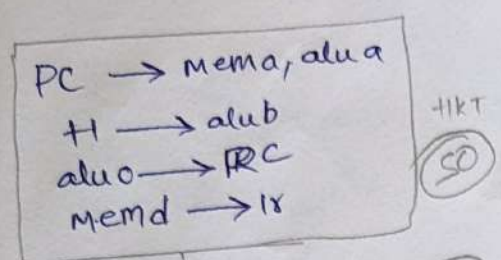 PC → mema, alu a
+1 → alub
alu o → PC
memd → Ir
HKT
S0